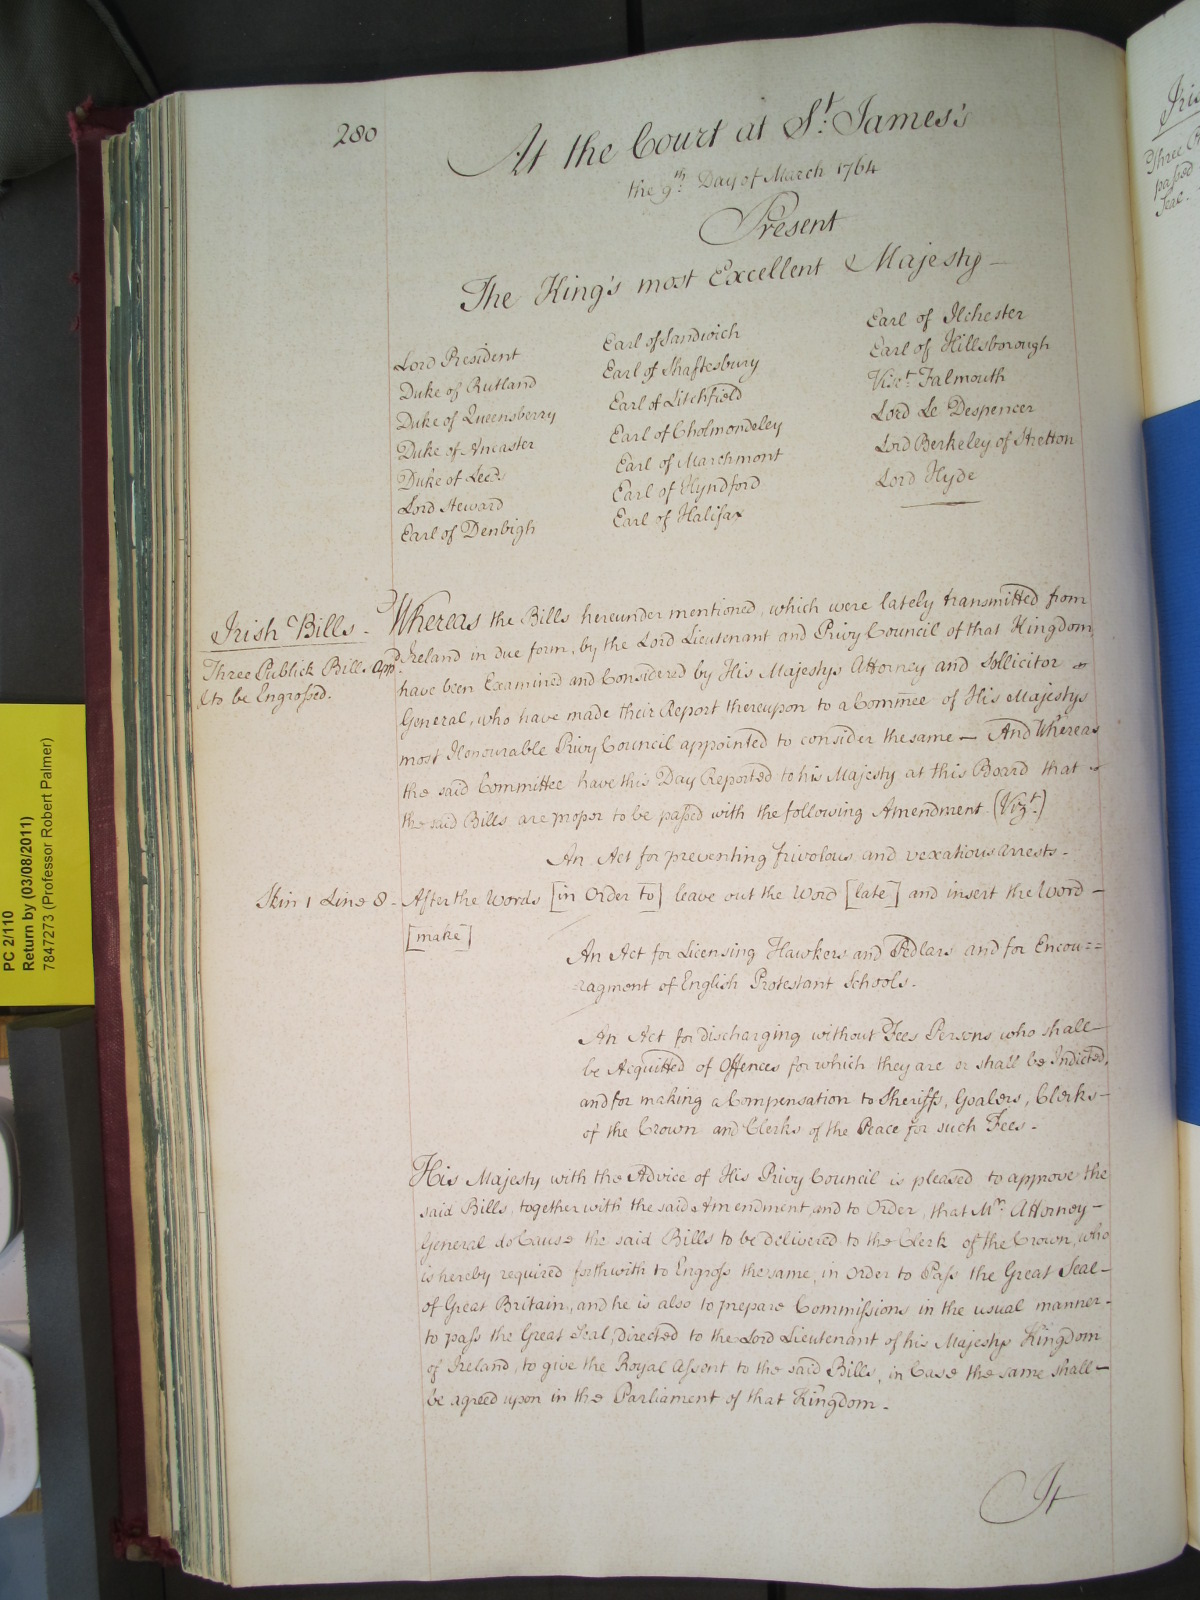 280
At the Court at St. James's
the 9th. Day of March 1764
Present
The King's most Excellent Majesty —
Lord President
Duke of Rutland
Duke of Queensberry
Duke of Ancaster
Duke of Leeds
Lord Steward
Earl of Denbigh
Earl of Sandwich
Earl of Shaftesbury
Earl of Litchfield
Earl of Cholmondeley
Earl of Marchmont
Earl of Hyndford
Earl of Halifax
Earl of Ilchester
Earl of Hillsborough
Visct. Falmouth
Lord Le Despencer
Lord Berkeley of Stretton
Lord Hyde
Irish Bills -
Three Publick Bills appd.
& to be Engrossed.
Whereas the Bills hereunder mentioned, which were lately transmitted from
Ireland in due form, by the Lord Lieutenant and Privy Council of that Kingdom,
have been Examined and Considered by His Majestys Attorney and Sollicitor
General, who have made their Report thereupon to a Commee of His Majestys
most Honourable Privy Council appointed to consider the same — And Whereas
the said Committee have this Day Reported to his Majesty at this Board that
the said Bills are proper to be passed with the following Amendment (Vizt.)
An Act for preventing frivolous and vexatious arrests -
Skin 1 Line 8 - After the Words [in Order to] leave out the Word [late] and insert the Word -
[make]
An Act for Licensing Hawkers and Pedlars and for Encou=
ragment of English Protestant Schools.
An Act for discharging without Fees Persons who shall
be Acquitted of Offences for which they are or shall be Indicted,
and for making a Compensation to Sheriffs, Goalers, Clerks -
of the Crown and Clerks of the Peace for such Fees -
His Majesty with the Advice of His Privy Council is pleased to approve the
said Bills, together with the said Amendment, and to Order, that Mr. Attorney -
General do Cause the said Bills to be delivered to the Clerk of the Crown, who
is hereby required forthwith to Engross the same, in Order to Pass the Great Seal -
of Great Britain, and he is also to prepare Commissions in the usual manner -
to pass the Great Seal, directed to the Lord Lieutenant of his Majestys Kingdom
of Ireland, to give the Royal Assent to the said Bills, in Case the same shall -
be agreed upon in the Parliament of that Kingdom -
It
PC 2/110
Return by (03/08/2011)
7847273 (Professor Robert Palmer)
Three
passed
Seal.